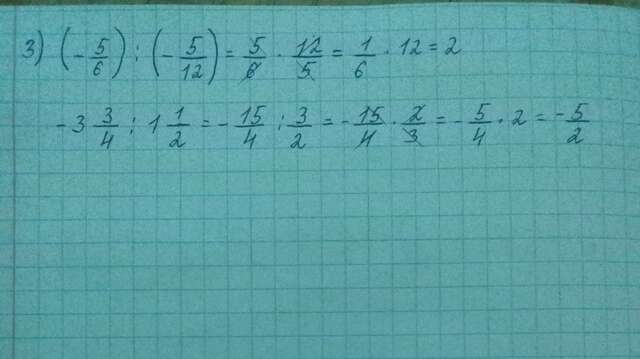 3) (-5/6) : (-5/12) = 5/6 · 12/5 = 1/6 · 12 = 2
-3 3/4 : 1 1/2 = -15/4 : 3/2 = -15/4 · 2/3 = -5/4 · 2 = -5/2